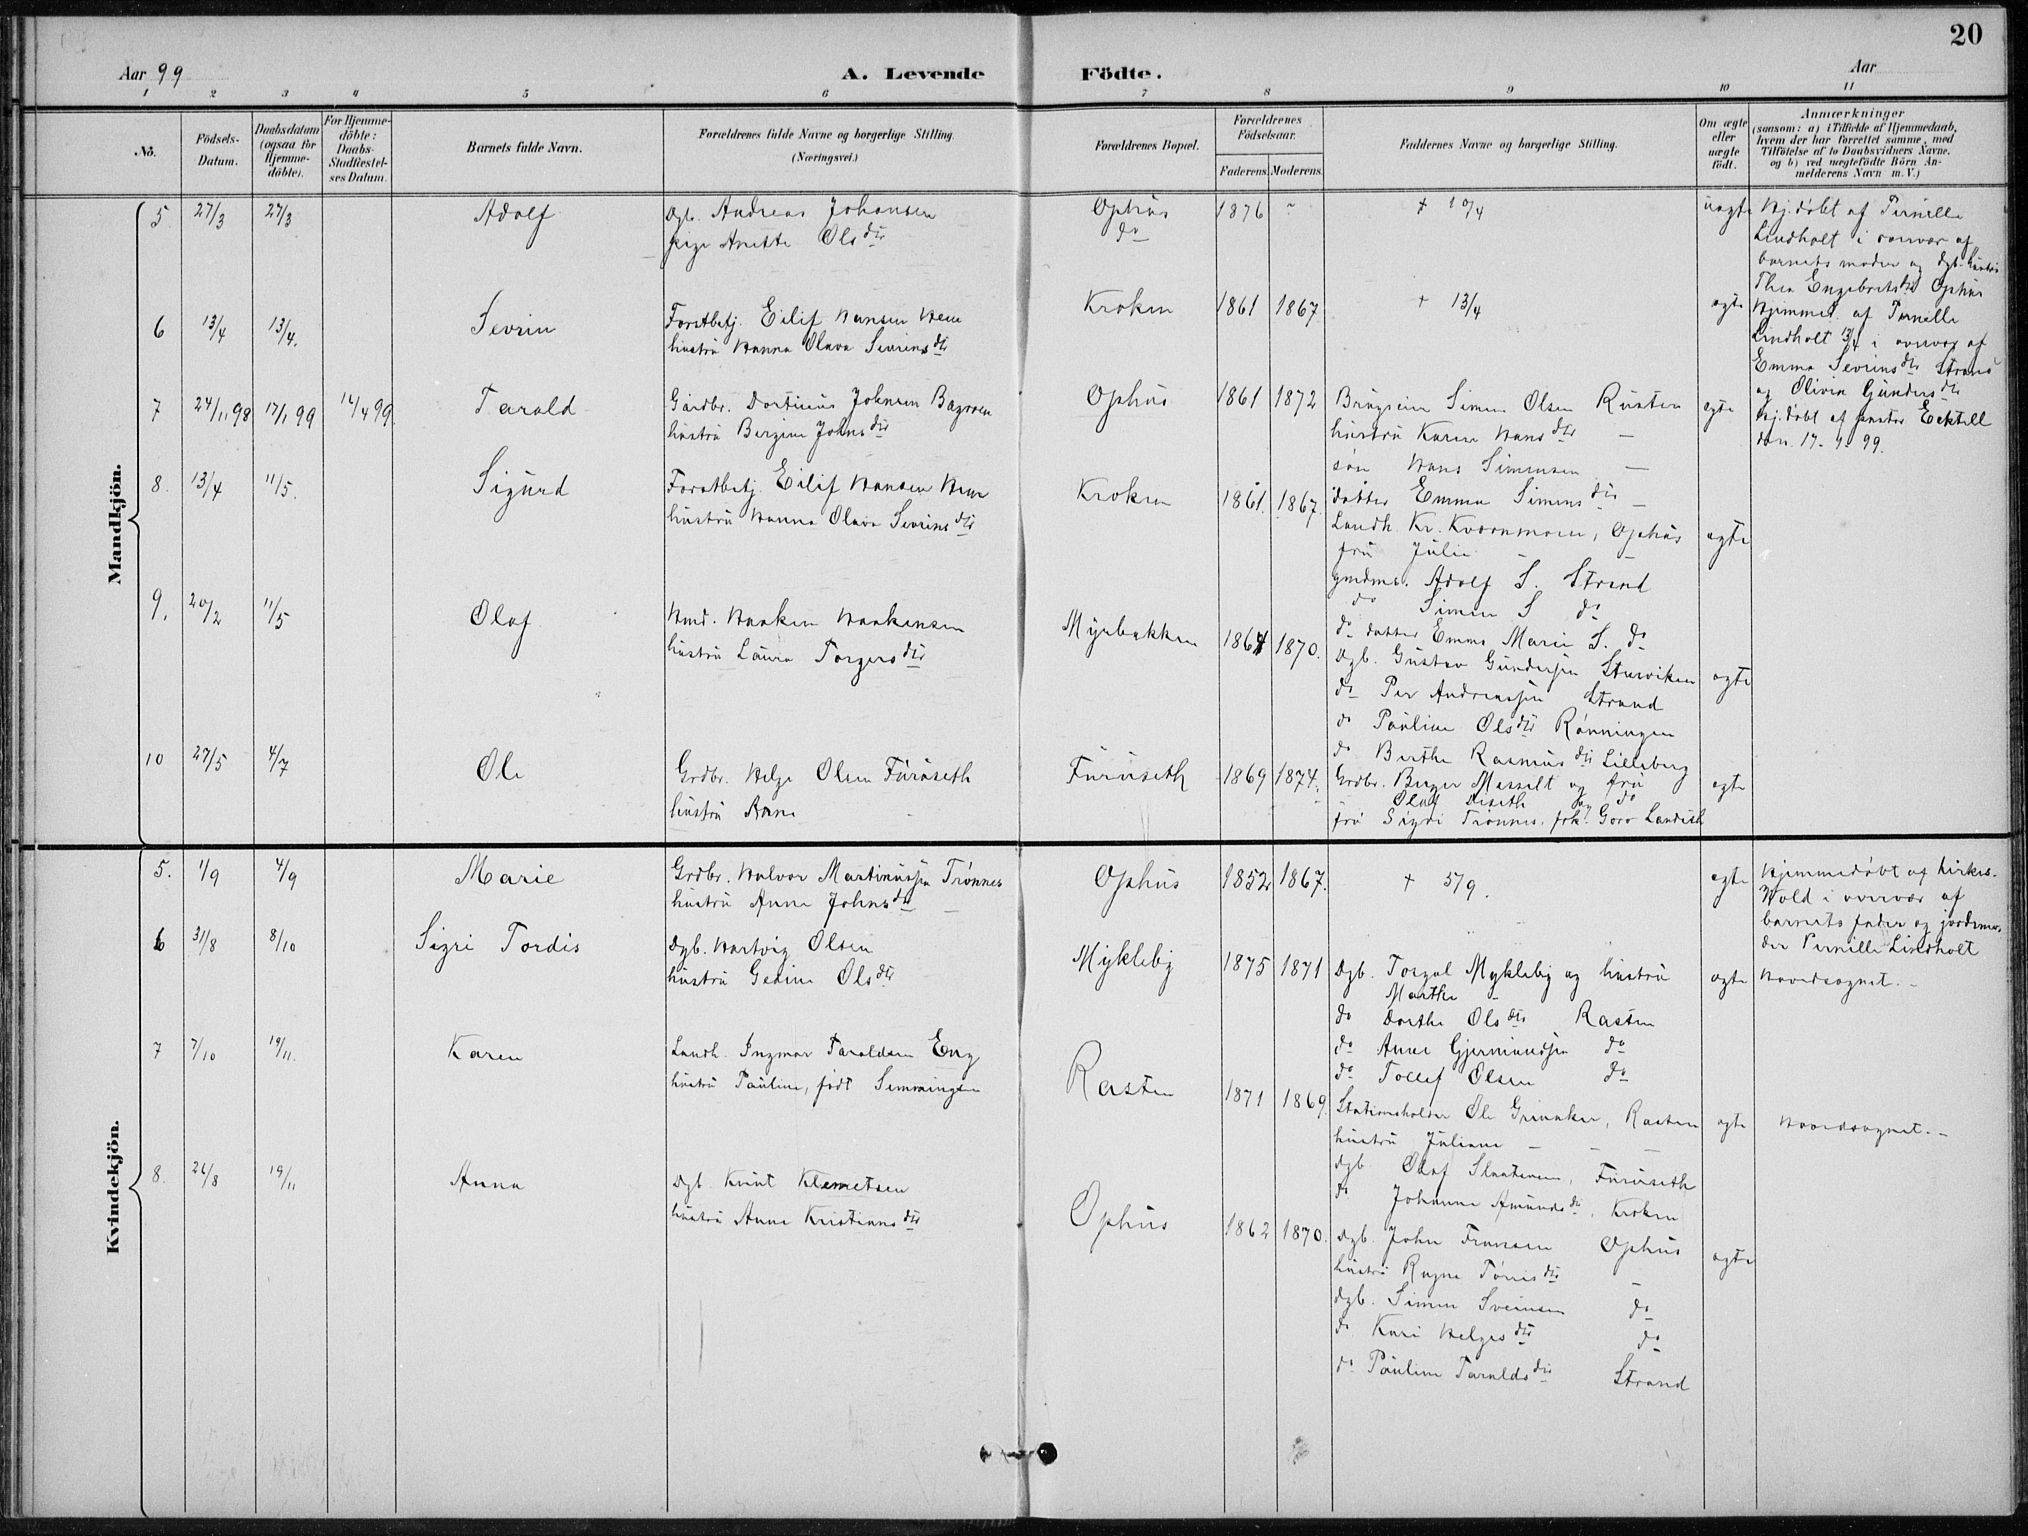 20
Aar 99
A. Levende Födte.
Aar
1 2 3 4 5 6 7 8 9 10 11
No.
Födsels-Datum.
Daabsdatum (ogsaa for Hjemme-döbte).
For Hjemme-döbte: Daabs-Stadfæstel-ses Datum.
Barnets fulde Navn.
Forældrenes fulde Navne og borgerlige Stilling.
(Næringsvei.)
Forældrenes Bopæl.
Forældrenes Födselsaar.
Faderens. Moderens.
Faddernes Navne og borgerlige Stilling.
Om ægte eller uægte födt.
Anmærkninger
(saasom: a) i Tilfælde af Hjemmedaab,
hvem der har forrettet samme, med
Tilföielse af to Daabsvidners Navne.
og b) ved uægtefödte Börn An-
melderens Navn m. V.)
Mandkjön.
5 27/3 27/3 Adolf
Dgb. Andreas Johansen
pige Anette Olsdtr
Ophus
do
1876 "
+ 10/4
uægte
Hj.døbt af Pernille
Lindholt i overvær af
barnets moder og dgb. hustru
Thea Engebretsdtr Ophus
6 13/4 13/4. Sevrin
Forstbetj. Eilif Hansen Hem
hustru Hanna Olava Sevrinsdtr
Kroken
1861 1867
+ 13/4
ægte
Hjemmed. af Pernille
Lindholt 13/4 i overvær af
Emma Sevrinsdtr Strand
og Olivia Gundersdtr
7 24/11 98 17/1 99 14/4 99. Tarald
Gårdbr. Dortinus Johnsen Bagroen
hustru Bergine Johnsdtr
Ophus
1861 1872
Brugseier Simen Olsen Rusten
hustru Karen Hansdtr —
søn Hans Simensen —
datter Emma Simensdtr —
ægte
Hj.døbt af prster Ecktell
den 17-1-99.
8. 13/4 11/5. Sigurd
Forstbetj. Eilif Hansen Hem
hustru Hanna Olava Sevrinsdtr
Kroken
1861. 1867.
Landh. Kr. Kværnmoen, Ophus
fru Julie —
grdmd. Adolf S. Strand
do Simen S do
do datter Emma Marie S. do
ægte
9. 20/2 11/5 Olaf
Hmd. Haaken Haakensen
hustru Laura Torgersdtr
Myrbakken
1864 1870.
Dgb. Gustav Gundersen Sturviken
do Per Andreassen Strand
do Pauline Olsdtr Rønningen
do Berthe Rasmusdtr Lilleberg
ægte
10 27/5 4/7 Ole
Grdbr. Helge Olsen Furuseth
hustru Anne
Furuseth
1869 1874.
Grdbr. Birger Messelt og fru
Olaf Diseth og do
fru Sigri Trønnes, frk. Goro Landseth
ægte
Kvindekjön.
5. 1/9 4/9 Marie
Grdbr. Halvor Martinussen Trønnes
hustru Anne Johnsdtr —
Ophus
1852 1867.
+ 5/9.
ægte
Hjemmedøbt af kirkes.
Wold i overvær af
barnets fader og jordemo-
der Pernille Lindholt
6 31/8 8/10 Sigri Tordis
Dgb. Hartvig Olsen
hustru Gedine Olsdtr
Mykleby
1875 1871
Dgb. Torgal Mykleby og hustru
Marthe —
do Dorthe Olsdtr Rasten
do Anne Gjermundsen do
do Tollef Olsen do
ægte
Hovedsognet. -
7 7/10 19/11. Karen
Landh. Ingmar Taraldsen Eng
hustru Pauline, født Simmingsen
Rasten
1871 1869.
Stationsholder Ole Grinaker, Rasten
hustru Juliane — —
dgb. Olaf Slaatsveen, Furuseth
do Johanne Amundsdtr, Kroken
ægte
Hovedsognet. -
8. 26/8 19/11 Anna
Dgb. Knut Klemetsen
hustru Anne Kristiansdtr
Ophus
1862 1870.
Dgb. John Fransen Ophus
hustru Ragna Tønnsdtr —
dgb. Simen Svensen do
do Kari Helgesdtr do
do Pauline Taraldsdtr Strand
ægte